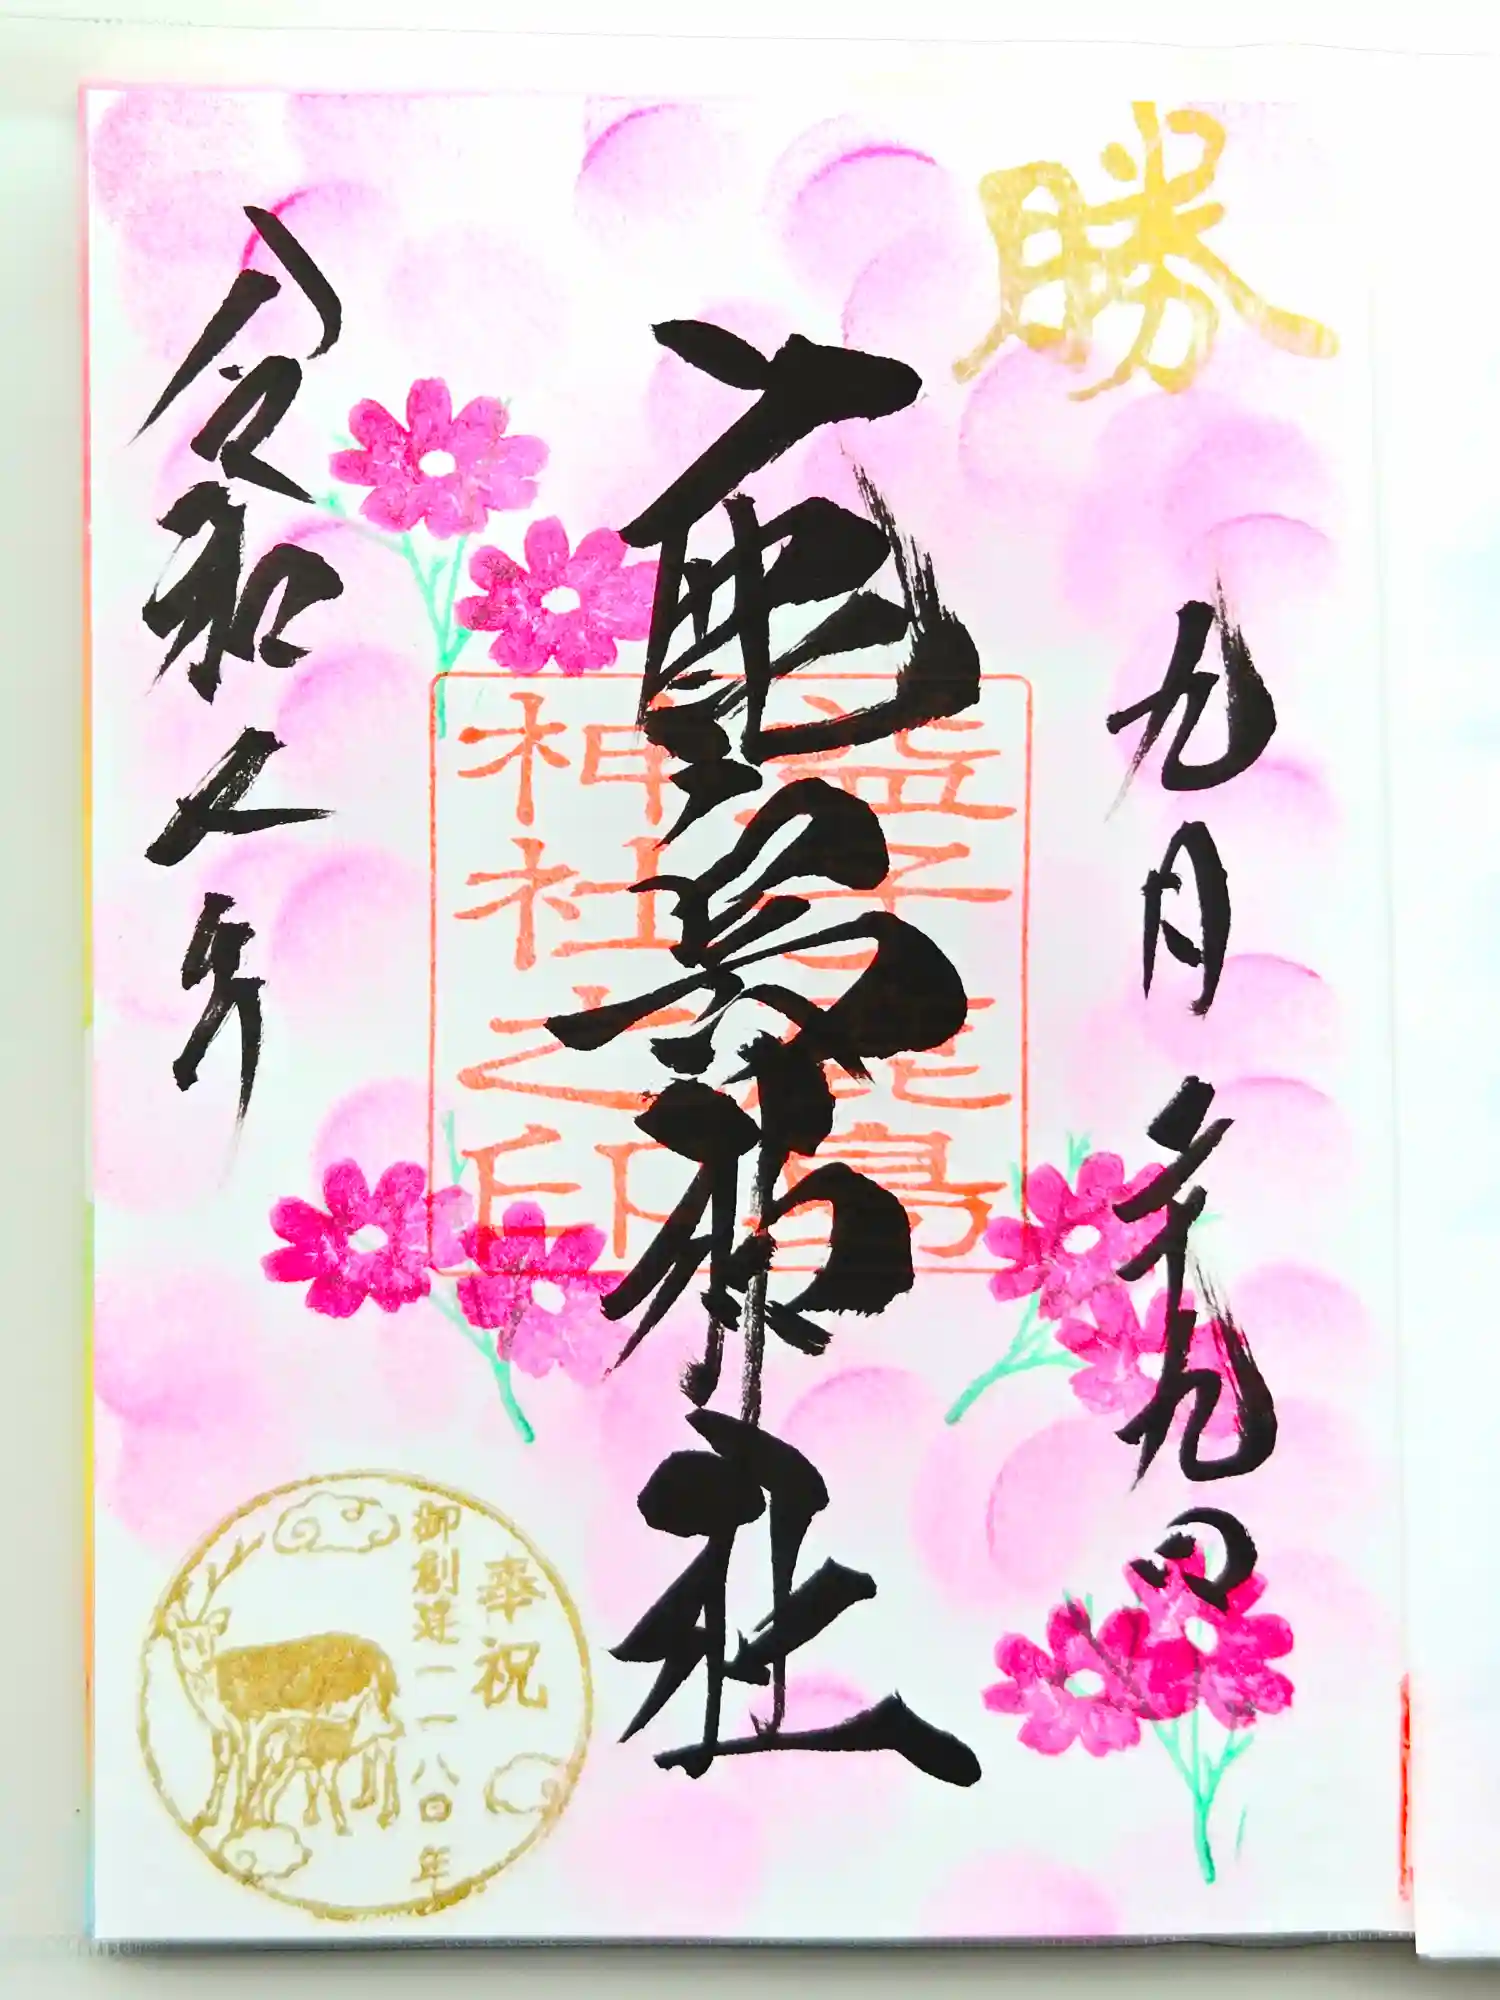 勝
九月二十九日
鹿島神社
益子鹿島
神社之印
令和八年
奉祝
御創建一一八〇年